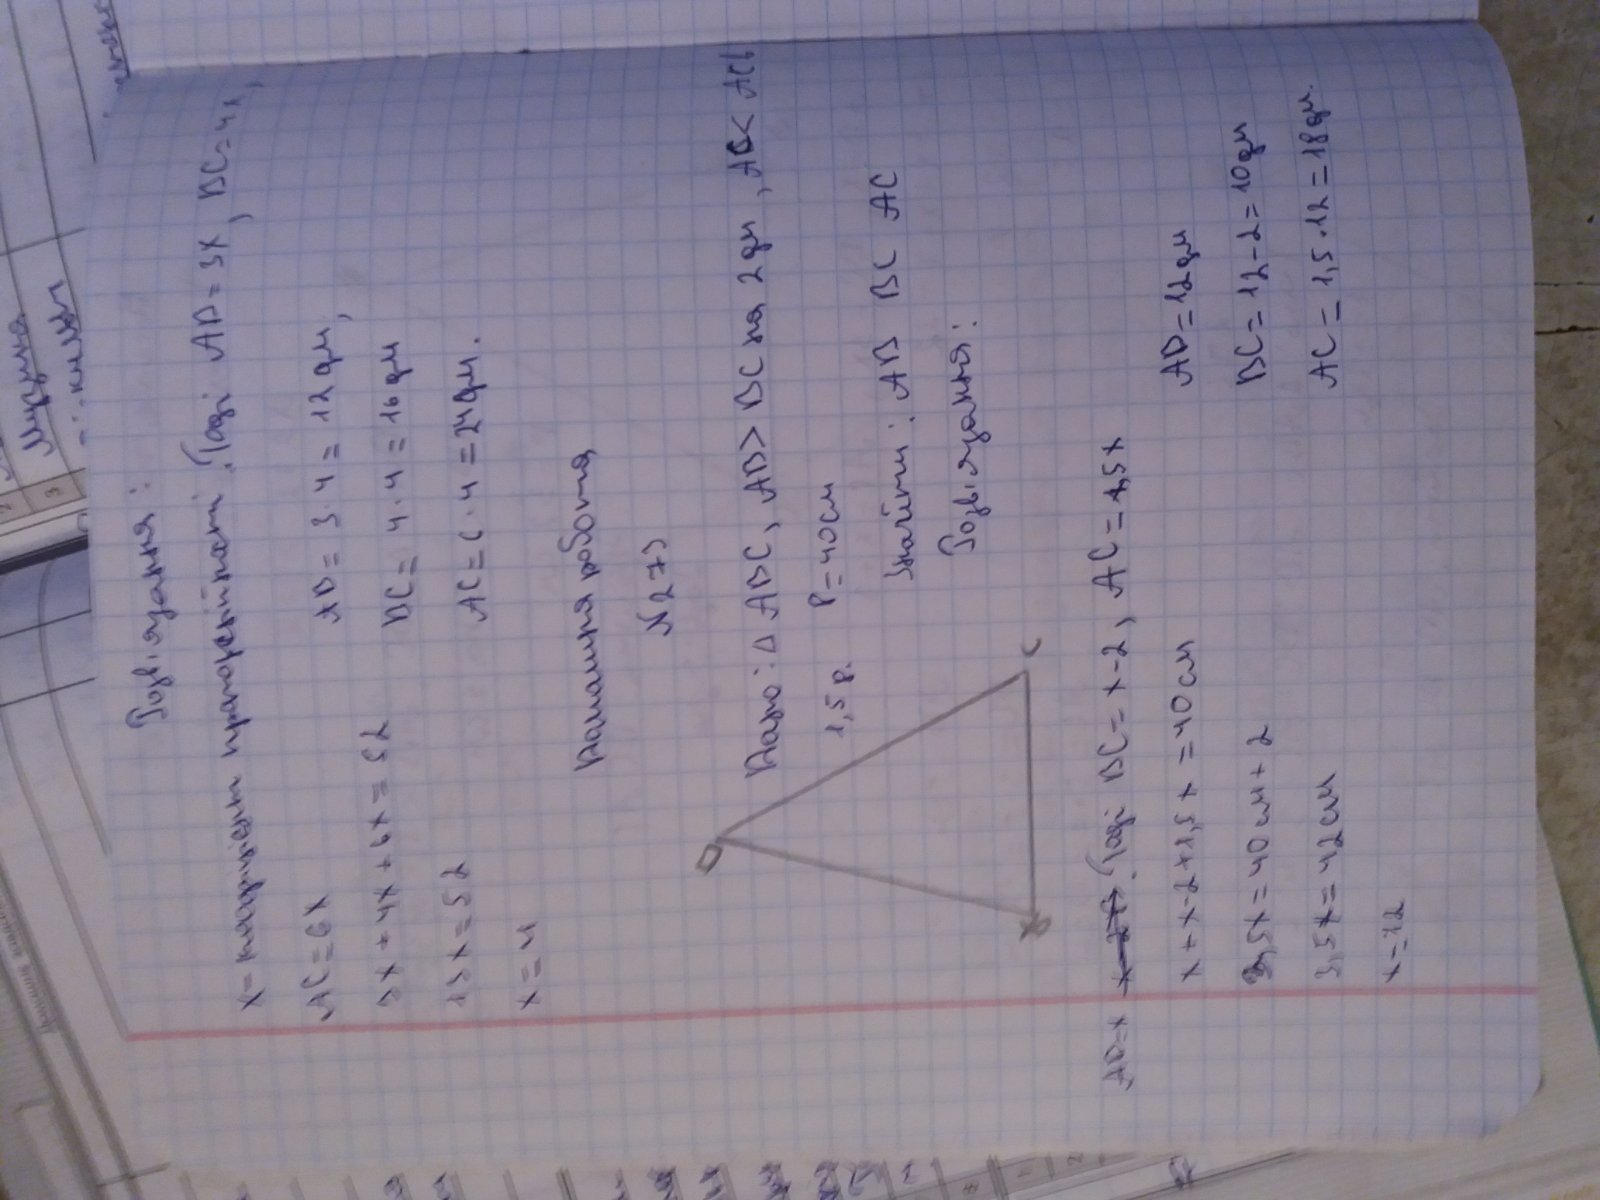 Розв'язання:
x - коефіцієнт пропорційності. Тоді AB = 3x, BC = 4x,
AC = 6x
3x + 4x + 6x = 52
13x = 52
x = 4
AB = 3 · 4 = 12 дм,
BC = 4 · 4 = 16 дм
AC = 6 · 4 = 24 дм.
Домашня робота
№ 273
Дано: △ ABC, AB > BC на 2 дм, AB < AC в
1,5 р. P = 40 см
Знайти: AB BC AC
Розв'язання:
B
C
AB = x Тоді BC = x - 2, AC = 1,5x
x + x - 2 + 1,5x = 40 см
3,5x = 40 см + 2
3,5x = 42 см
x = 12
AB = 12 дм
BC = 12 - 2 = 10 дм
AC = 1,5 · 12 = 18 дм.